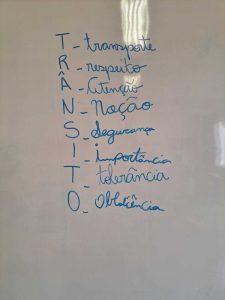 T - transporte
R - respeito
Â - Atenção
N - Noção
S - segurança
I - importância
T - tolerância
O - obediência